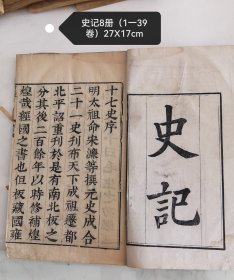 史记8册（1一39
卷）27X17cm
史記
十七史序
明太祖命宋濂等撰元史成合
二十一史刊布天下成祖遷都
北平詔重刊於是有南北板之
分其後二百餘年以時修補煌
煌哉經國之書也但板藏國雍